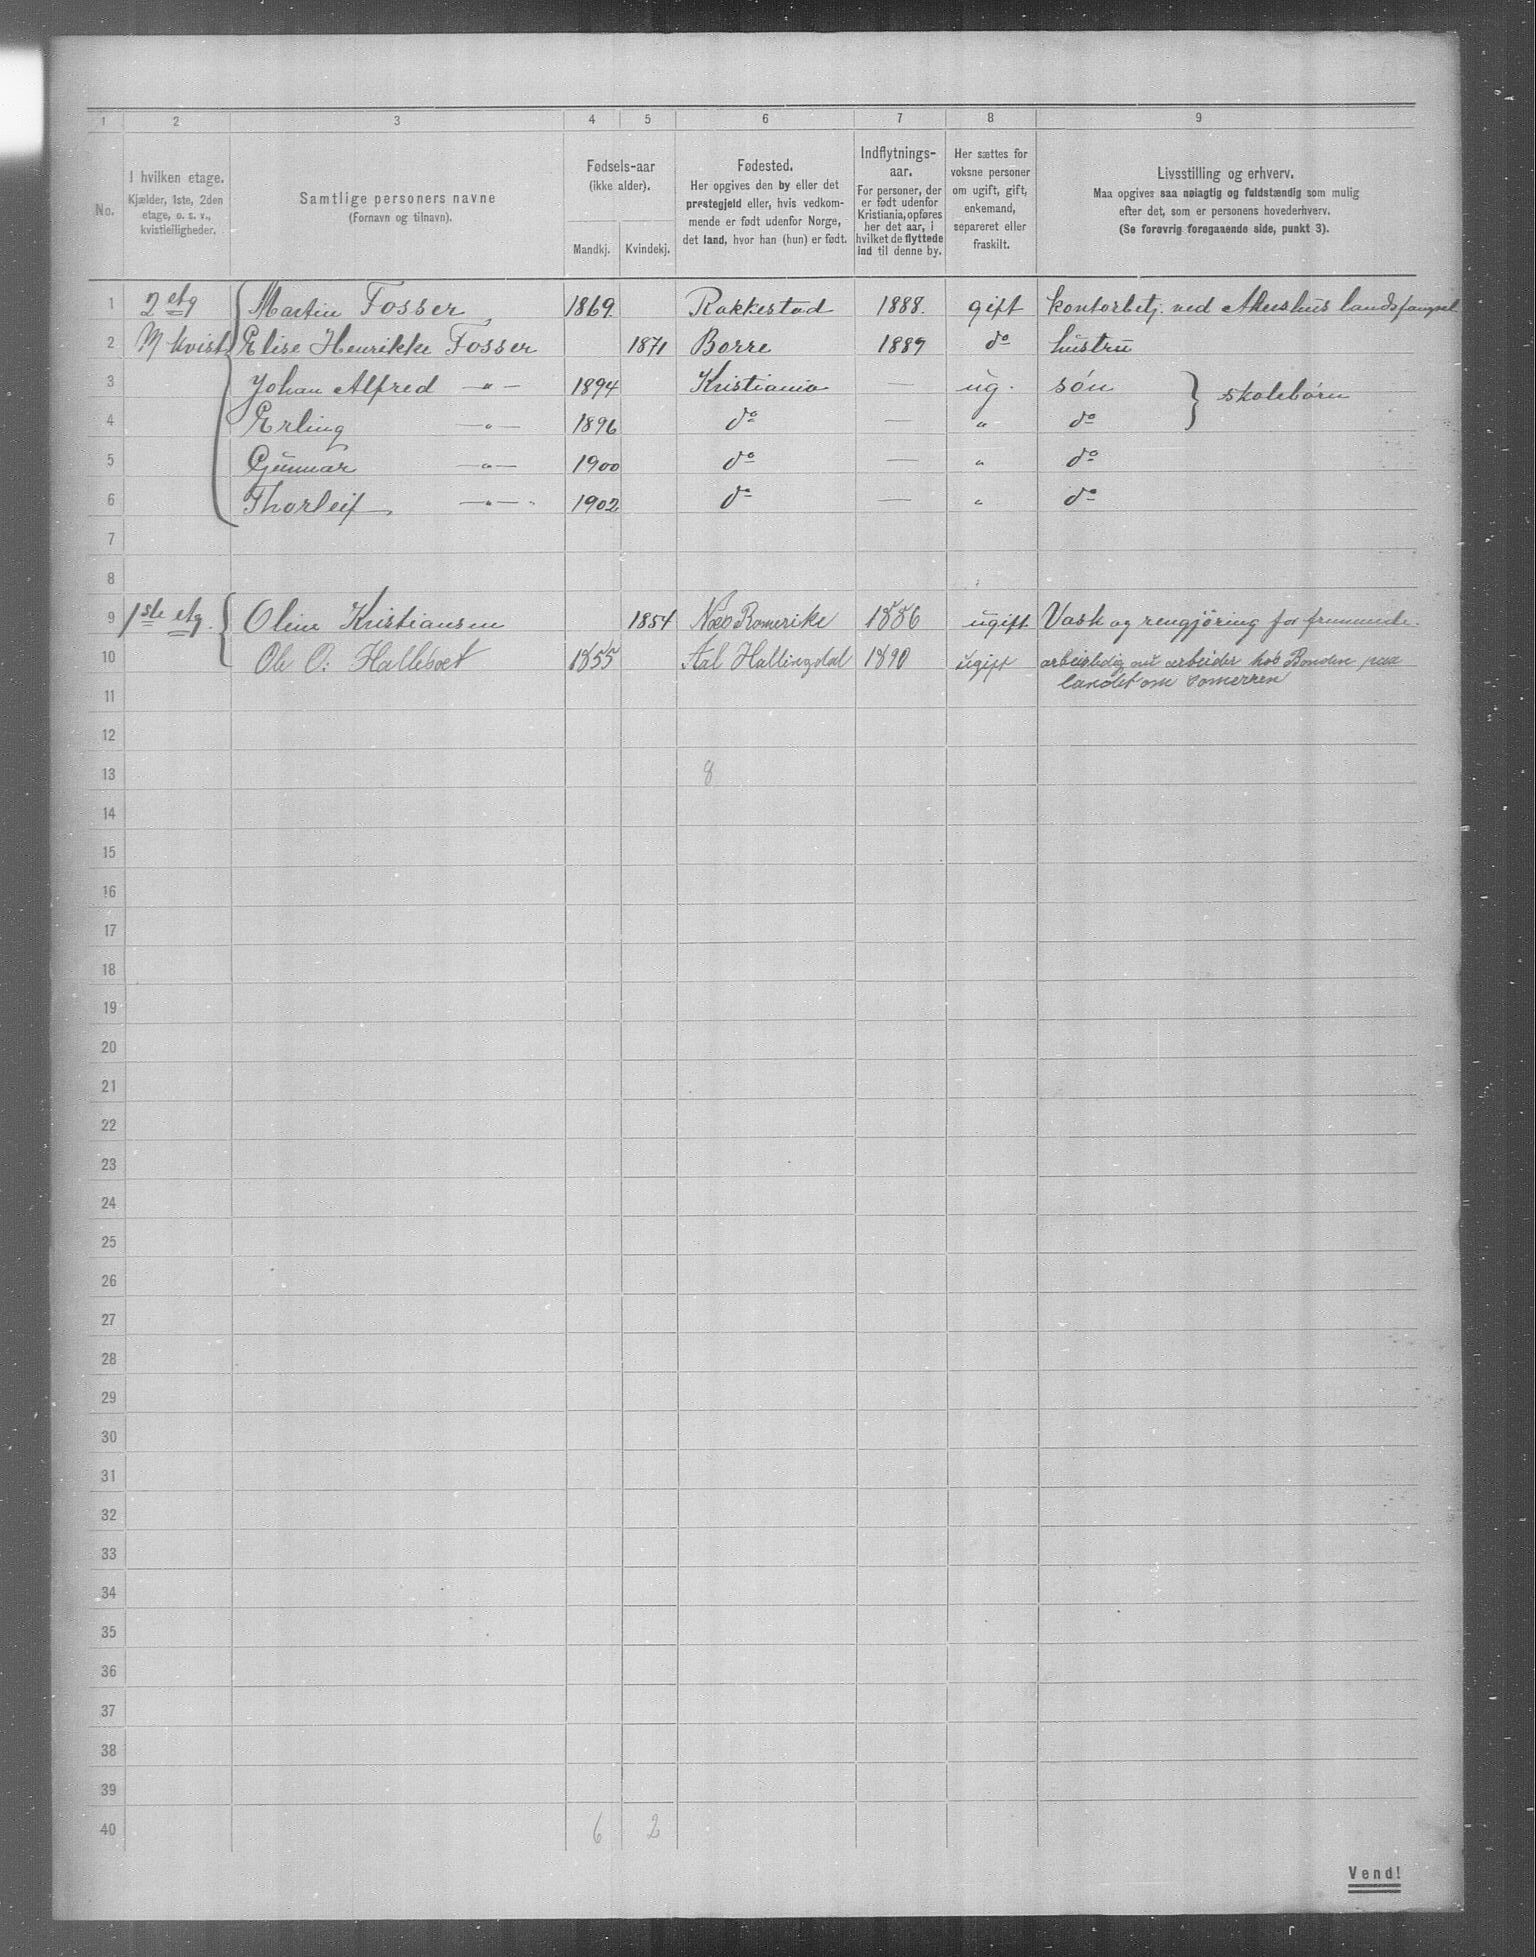 1 2 3 4 5 6 7 8 9
No.
I hvilken etage.
Kjælder, 1ste, 2den
etage, o. s. v.,
kvistleiligheder.
Samtlige personers navne
(Fornavn og tilnavn).
Fødsels-aar
(ikke alder).
Mandkj. Kvindekj.
Fødested.
Her opgives den by eller det
prestegjeld eller, hvis vedkom-
mende er født udenfor Norge,
det land, hvor han (hun) er født.
Indflytnings-
aar.
For personer, der
er født udenfor
Kristiania, opføres
her det aar, i
hvilket de flyttede
ind til denne by.
Her sættes for
voksne personer
om ugift, gift,
enkemand,
separeret eller
fraskilt.
Livsstilling og erhverv.
Maa opgives saa nøiagtig og fuldstændig som mulig
efter det, som er personens hovederhverv.
(Se forøvrig foregaaende side, punkt 3).
1 2 etg Martin Fosser 1869. Rakkestad 1888. gift kontorbetj. ved Akershus landsfængsel
2 M kvist Elise Henrikke Fosser 1871 Borre 1889 do hustru
3 Johan Alfred — " — 1894 Kristiania — ug. søn skolebørn
4 Erling — " — 1896 do — " do
5 Gunnar — " — 1900 do — " do
6 Thorleif — " — 1902 do — " do
7
8
9 1ste etg. Oline Kristiansen 1854 Næs Romerike 1886 ugift Vask og rengjøring for fremmede.
10 Ole O. Halleboet 1855 Aal Hallingdal 1890 ugift arbeisledig nu arbeider hos Bonden paa
landet om Somerren
11
12
13 8
14
15
16
17
18
19
20
21
22
23
24
25
26
27
28
29
30
31
32
33
34
35
36
37
38
39
40 6 2
Vend!